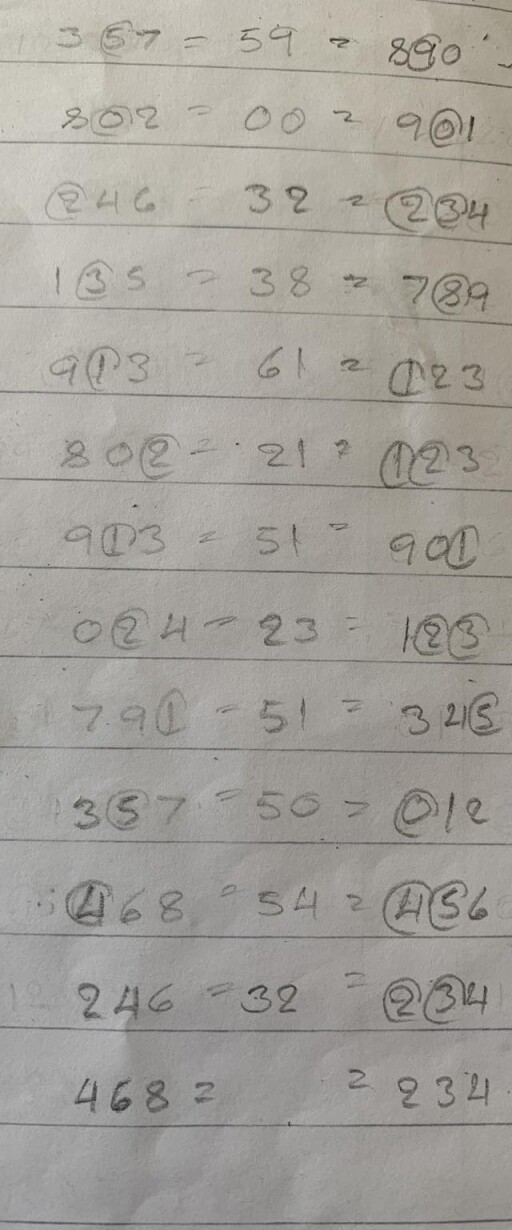 357 = 59 = 890
802 = 00 = 901
246 = 32 = 234
135 = 38 = 789
913 = 61 = 123
802 = 21 = 123
913 = 51 = 901
024 = 23 = 123
791 = 51 = 345
357 = 50 = 012
468 = 54 = 456
246 = 32 = 234
468 = = 234